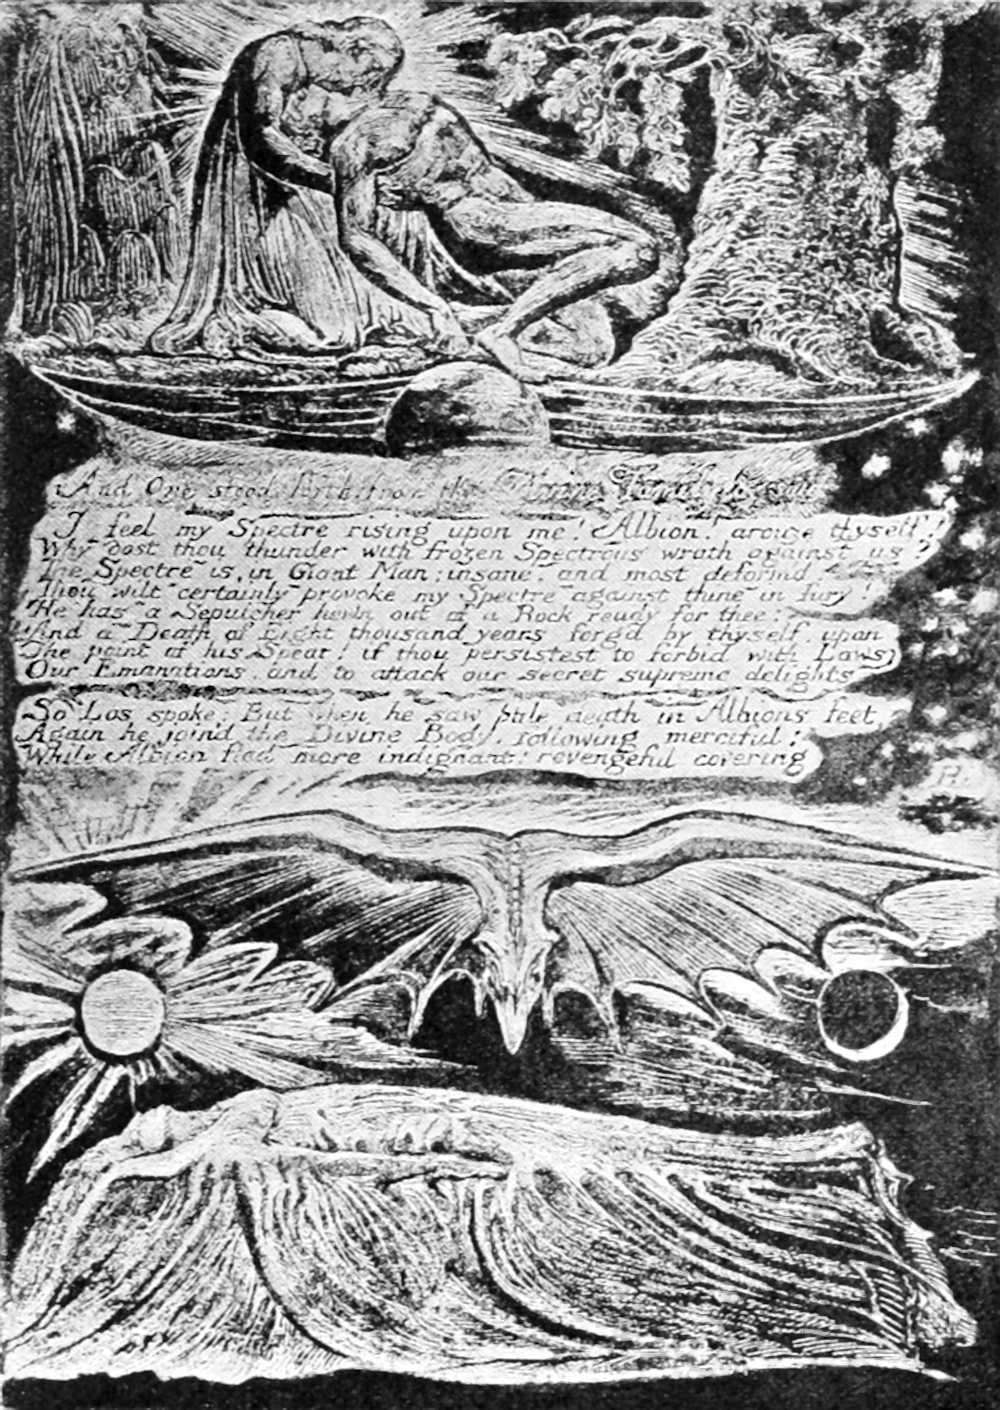 And One stood forth from the Divine Family
I feel my Spectre rising upon me! Albion! arouze thyself!
Why dost thou thunder with frozen Spectrous wrath against us
The Spectre is, in Giant Man; insane, and most deform'd
Thou wilt certainly provoke my Spectre against thine in fury!
He has a Sepulcher hewn out of a Rock ready for thee:
And a Death of Eight thousand years forg'd by thyself, upon
The point of his Spear! if thou persistest to forbid with Laws
Our Emanations, and to attack our secret supreme delights
So Los spoke: But when he saw death in Albions feet,
Again he join'd the Divine Body, following merciful;
While Albion fled more indignant! revengeful covering